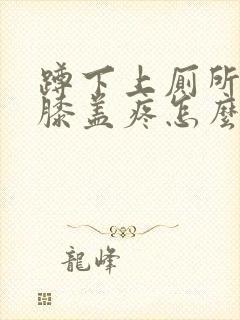 蹲下上厕所
膝盖疼怎麼
龍峰